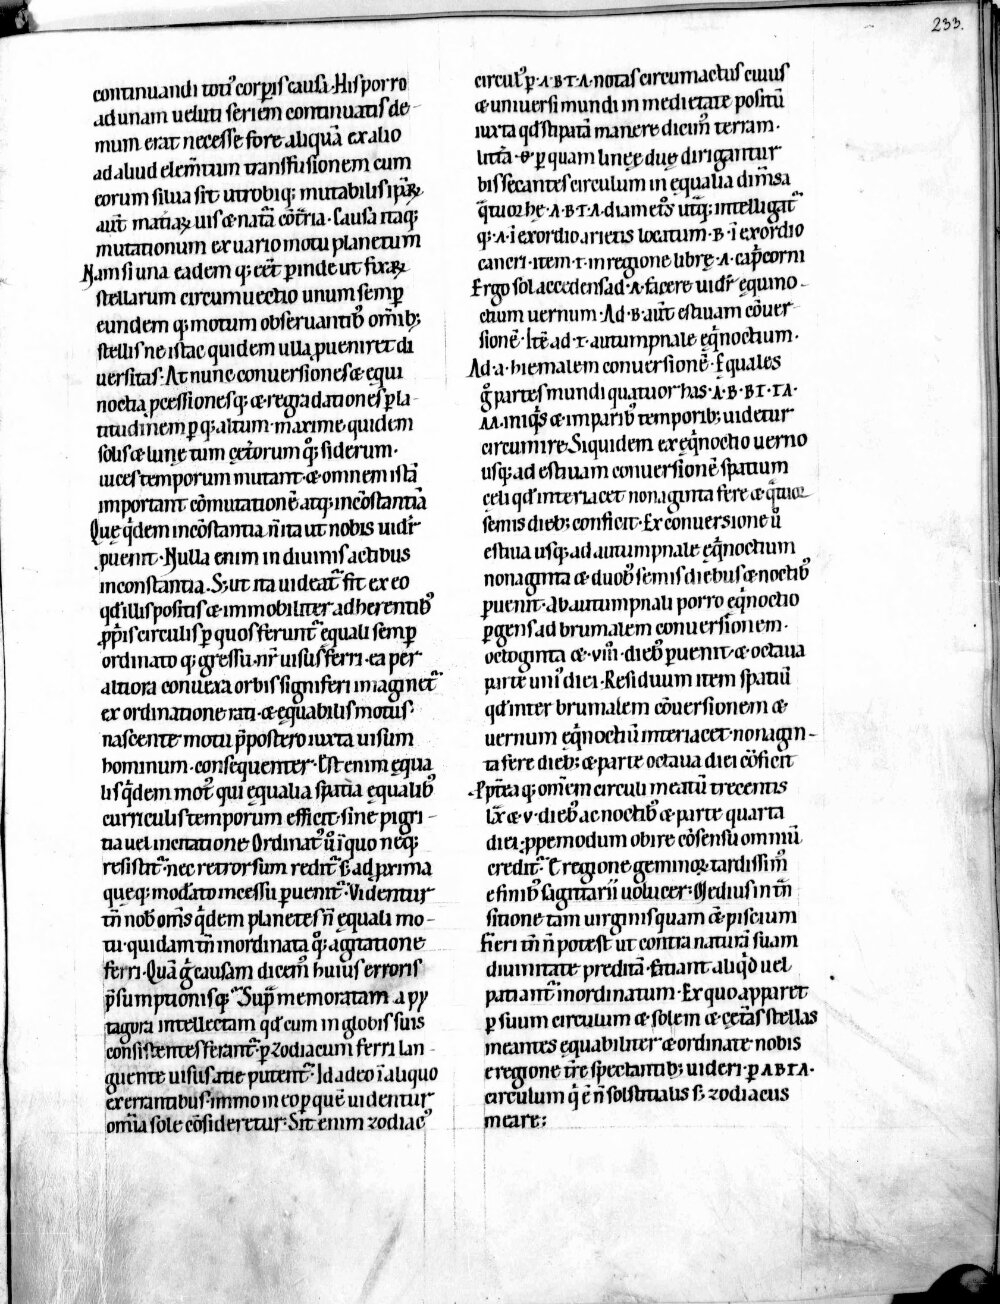 233.
continuandi toti᷒ corp̲is causa. His porro
ad unam ueluti seriem continuatis de-
mum erat necesse fore aliquā ex alio
ad aliud elem̄tum transfusionem cum
eorum silua sit utrobiq; mutabilis ip̄aꝝ
aut̄ mat̄iaꝝ uis & nat̄a cōt̄ria. Causa itaq;
mutationum ex uario motu planetum
Nam si una eadem q; cet̄ p̲inde ut fixaꝝ
stellarum circumuectio unum semp̲
eundem q; motum obseruantib᷒ om̄ib;
stellis ne istac quidem ulla ꝓueniret di
uersitas. At nunc conuersiones & equi
noctia p̄cessionesq; & regradationes p̲ la-
titudinem p̲ q; altum. maxime quidem
solis & lunę tum cęt̄orum qͦ; siderum.
uices temporum mutant & omnem istā
important cōmutationē atq; incōstantiā
Que q̇dem incōstantia ñ ita ut nobis uidr̄
ꝓuenit. Nulla enim in diuinis actibus
inconstantia. S; ut ita uideat̄ fit ex eo
qd̓ illis positis & immobiliter adherentib᷒
ꝓp̄is circulis p̲ quos ferunt̄ equali semp̲
ordinato q; gressu. nr̄ uisus ferri. ea per
altiora conuexa orbis signiferi imaginet̄
ex ordinatione rati. & ęquabilis motus.
nascente motu p̄postero iuxta uisum
hominum. consequenter. Est enim ęqua
lis q̇dem mot᷒ qui ęqualia spatia ęqualib᷒
curriculis temporum efficit. sine pigri-
tia uel incitatione Ordinat᷒ u̇ ī quo neq;
resistit̄. nec retrorsum redit̄ s; ad prima
queq; mod̓ato incessu p̲uenit̄. Videntur
tn̄ nob̓ om̄s q̇dem planetes ñ ęquali mo-
tu. quidam tn̄ inordinata qͦ; agitatione
ferri. Quā g̊ causam dicem᷒ huius erroris
p̄sumptionisq; Sup̲ memoratam a py
tagora intellectam qd̓ cum in globis suis
consistentes ferant̄. p̲ zodiacum ferri lan-
guente uisus acie putent̄. Id adeo ī aliquo
ex errantibus. immo in eo p̲ quē uidentur
om̄ia sole cōsideretur. Sit enim zodiac᷒
circul᷒ p̲ .Α.Β.Γ.Δ. notas circumactus cuius
& uniuersi mundi in medietate positū
iuxta qd̓ stipatā manere dicim᷒ terram.
litt̄a .Θ. p̲ quam linęę duę dirigantur
bis secantes circulum in ęqualia dim̄sa
q̄tuor hę .Α.Β.Γ.Δ. diamet᷒s utq; intelligat̄
q; .Α. ī exordio arietis locatum. Β. ī exordio
cancri. item .Γ. in regione librę .Δ. cap̄corni
Ergo sol accedens ad .Α. facere uidr̄ ęquino-
ctium uernum. Ad .Β. aut̄ estiuam cōuer-
sionē. Itē ad .Γ. autumpnale eq̇noctium.
Ad .Δ. hiemalem conuersionē. Equales
g̊ partes mundi quatuor has .Α.Β.ΒΓ.ΓΔ.
ΔΑ. iniq᷒s & imparib᷒ temporib; uidetur
circumire. Siquidem ex eq̇noctio uerno
usq; ad estiuam conuersionē spatium
cęli qd̓ interiacet nonaginta fere & q̄tuor
semis dieb; conficit. Ex conuersione u̇
estiua usq; ad autumpnale eq̇noctium
nonaginta & duob᷒ semis diebus & noctib᷒
p̲uenit. Ab autumpnali porro eq̇noctio
p̲gens ad brumalem conuersionem.
octoginta & .viii. dieb᷒ p̲uenit. & octaua
parte uni᷒ diei. Residuum item spatiū
qd̓ inter brumalem cōuersionem &
uernum eq̇noctiū interiacet. nonagin-
ta fere dieb; & parte octaua diei cōficit
Ppt̄ea q; om̄em circuli meatū trecentis
lx̄ & .v. dieb᷒ ac noctib᷒ & parte quarta
diei. ꝓpemodum obire cōsensu omniū
credit̄. E regione geminoꝝ tardissim᷒
e finib᷒ sagittarii uolucer. Medius in tn̄
sitione tam uirginis quam & piscium
Fieri tn̄ ñ potest ut contra naturā suam
diuinitate preditā. faciant aliq̇d uel
patiant̄ inordinatum. Ex quo apparet
p̲ suum circulum & solem & cęt̄as stellas
meantes equabiliter & ordinate nobis
e regione tr̄e spectantib; uideri. p̲ ΑΒΓΔ.
circulum q̇ ē ñ solstitialis s; zodiacus
meare;